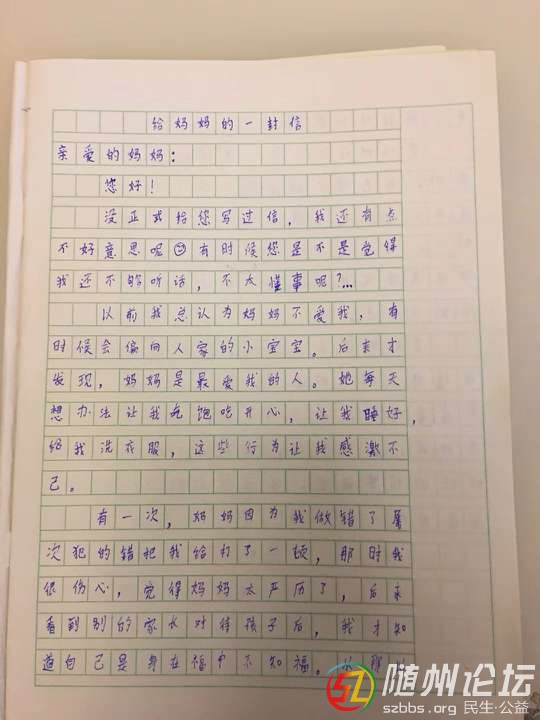 给妈妈的一封信
亲爱的妈妈：
您好！
没正式给您写过信，我还有点
不好意思呢☺有时候您是不是觉得
我还不够听话，不太懂事呢？…
以前我总认为妈妈不爱我，有
时候会偏向人家的小宝宝。后来才
发现，妈妈是最爱我的人。她每天
想办法让我吃饱吃开心，让我睡好，
给我洗衣服，这些行为让我感激不
己。
有一次，妈妈因为我做错了屡
次犯的错把我给打了一顿，那时我
很伤心，觉得妈妈太严历了，后来
看到别的家长对待孩子后，我才知
道自己是身在福中不知福。
随州论坛
szbbs.org 民生·公益